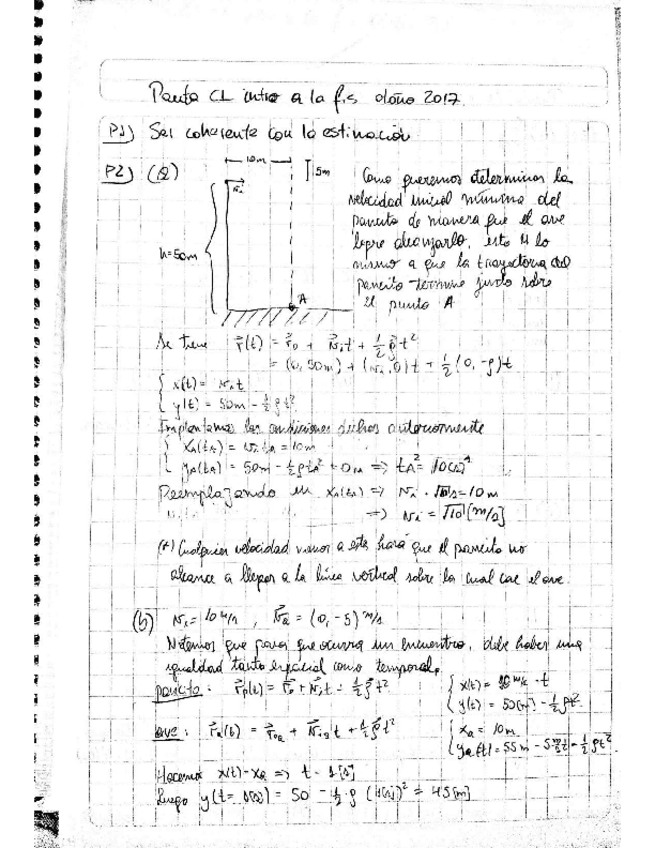 Pauta C1 intro a la fis otoño 2017.
P1) Ser coherente con la estimación
P2) (a)
10m
5m
h=50m
A
Como queremos determinar la
velocidad inicial mínima del
pancito de manera que el ave
logre alcanzarlo, esto es lo
mismo a que la trayectoria del
pancito termine justo sobre
el punto A
Se tiene r(t) = r₀ + v_i t + ½ g t²
= (0, 50m) + (v_i, 0) t + ½ (0, -g) t
x(t) = v_i t
y(t) = 50m - ½ g t²
Implantamos las condiciones dichas anteriormente
x_A(t_A) = v_i t_A = 10m
y_A(t_A) = 50m - ½ g t_A² = 0m => t_A² = 10
Reemplazando en x_A(t_A) => v_i · √10 s = 10m
=> v_i = √10 [m/s]
(*) Cualquier velocidad menor a esta hará que el pancito no
alcance a llegar a la línea vertical sobre la cual cae el ave.
(b) v_i = 10 m/s, v_a = (0, -5) m/s
Notemos que para que ocurra un encuentro, debe haber una
igualdad tanto espacial como temporal.
pancito: r_p(t) = r₀ + v_i t + ½ g t²
x(t) = 10 m/s · t
y(t) = 50[m] - ½ g t²
ave: r_a(t) = r₀a + v_ia t + ½ g t²
x_a = 10m
y_a(t) = 55m - 5 m/s t - ½ g t²
Hacemos x(t) = x_a => t = 1[s]
Luego y(t = 1[s]) = 50 - ½ · g (1[s])² = 45[m]